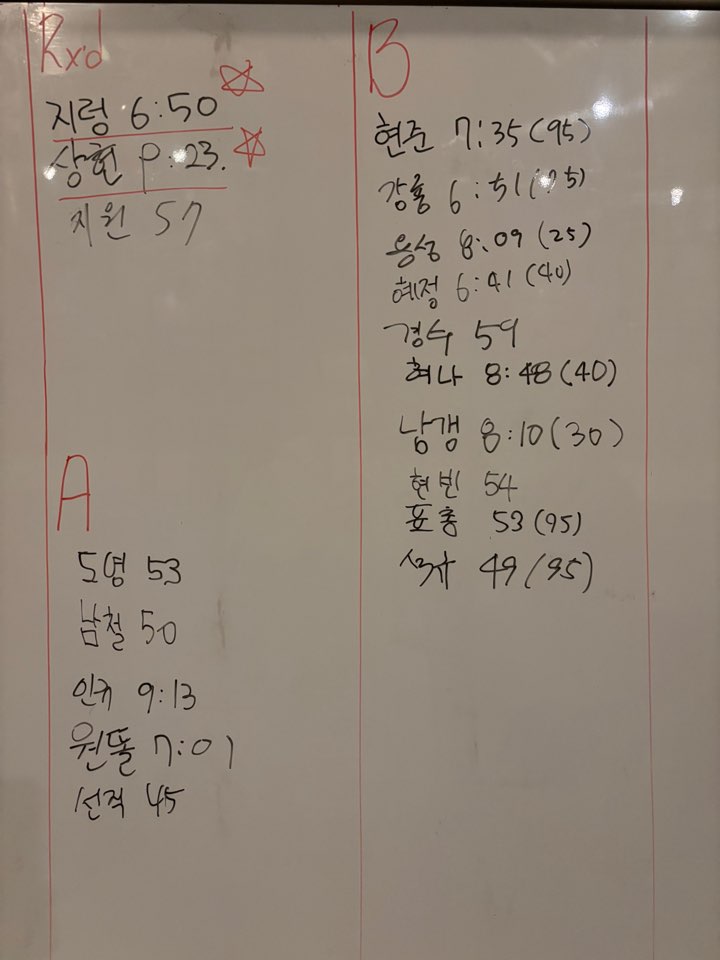 Rx'd
지렁 6:50
상현 9:23.
지원 57
A
도영 53
남철 50
인규 9:13
원똘 7:01
선직 45
B
현준 7:35(95)
강훈 6:51
용성 8:09(25)
혜정 6:41(40)
경수 59
허나 8:48(40)
남갱 8:10(30)
현빈 54
표총 53(95)
49(95)